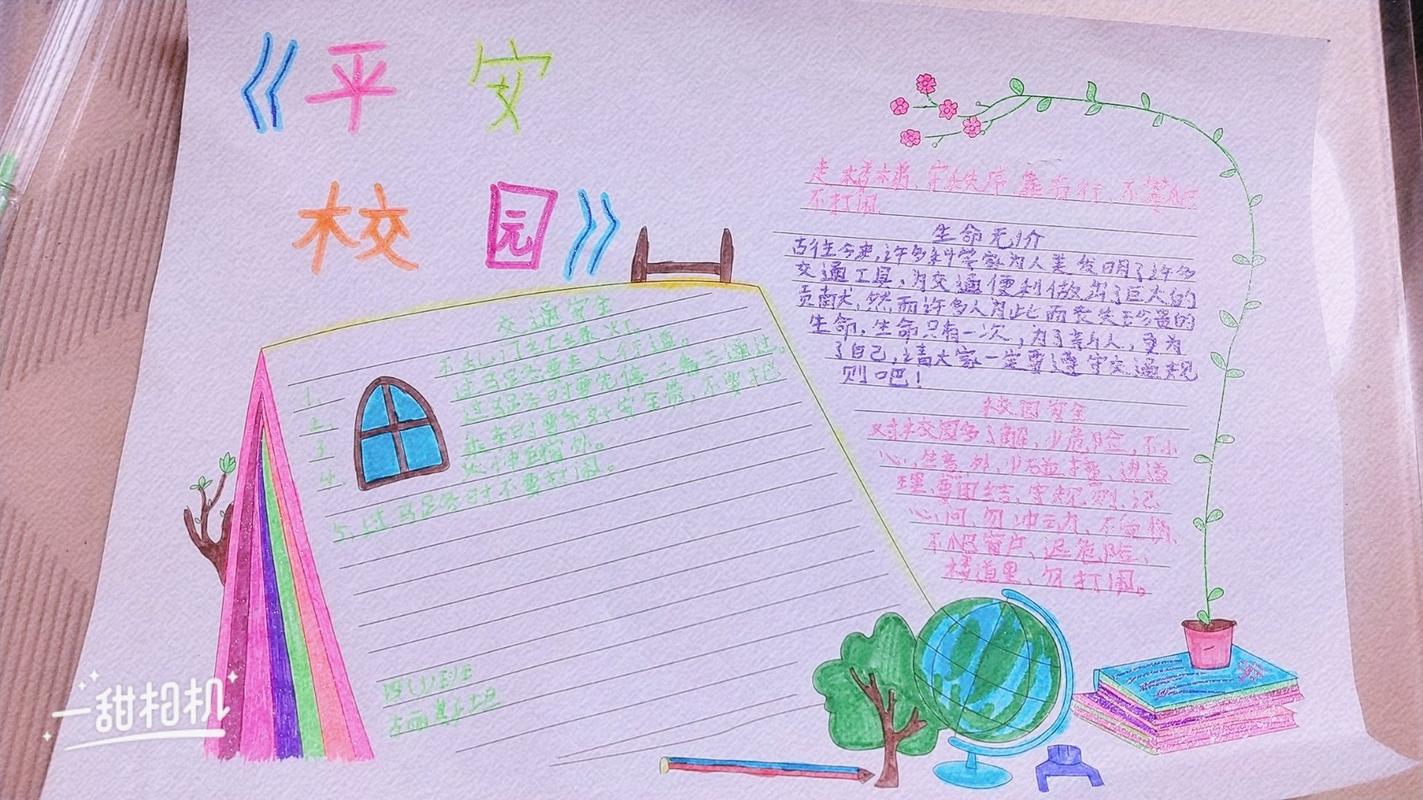 《平安
校园》
走楼梯,守秩序,靠右行,不攀爬
不打闹
生命无价
古往今来,许多科学家为人类发明了许多
交通工具,为交通便利做出了巨大的
贡献,然而许多人为此而丧失珍贵的
生命,生命只有一次,为了亲人,更为
了自己,请大家一定要遵守交通规
则吧!
校园安全
对校园多了解,少危险,不小
心,生意外,少碰撞,讲道
理,要团结,守规则,记
心间,勿冲动,不
不爬窗户,远危险,
楼道里,勿打闹。
交通安全
1. 不乱闯红绿灯。
2. 过马路要走人行道。
3 过马路时要先停二看三通过。
4. 坐车时要系好安全带,不要把
头伸出窗外。
5、过马路时不要打闹。
四(1)班
一甜相机